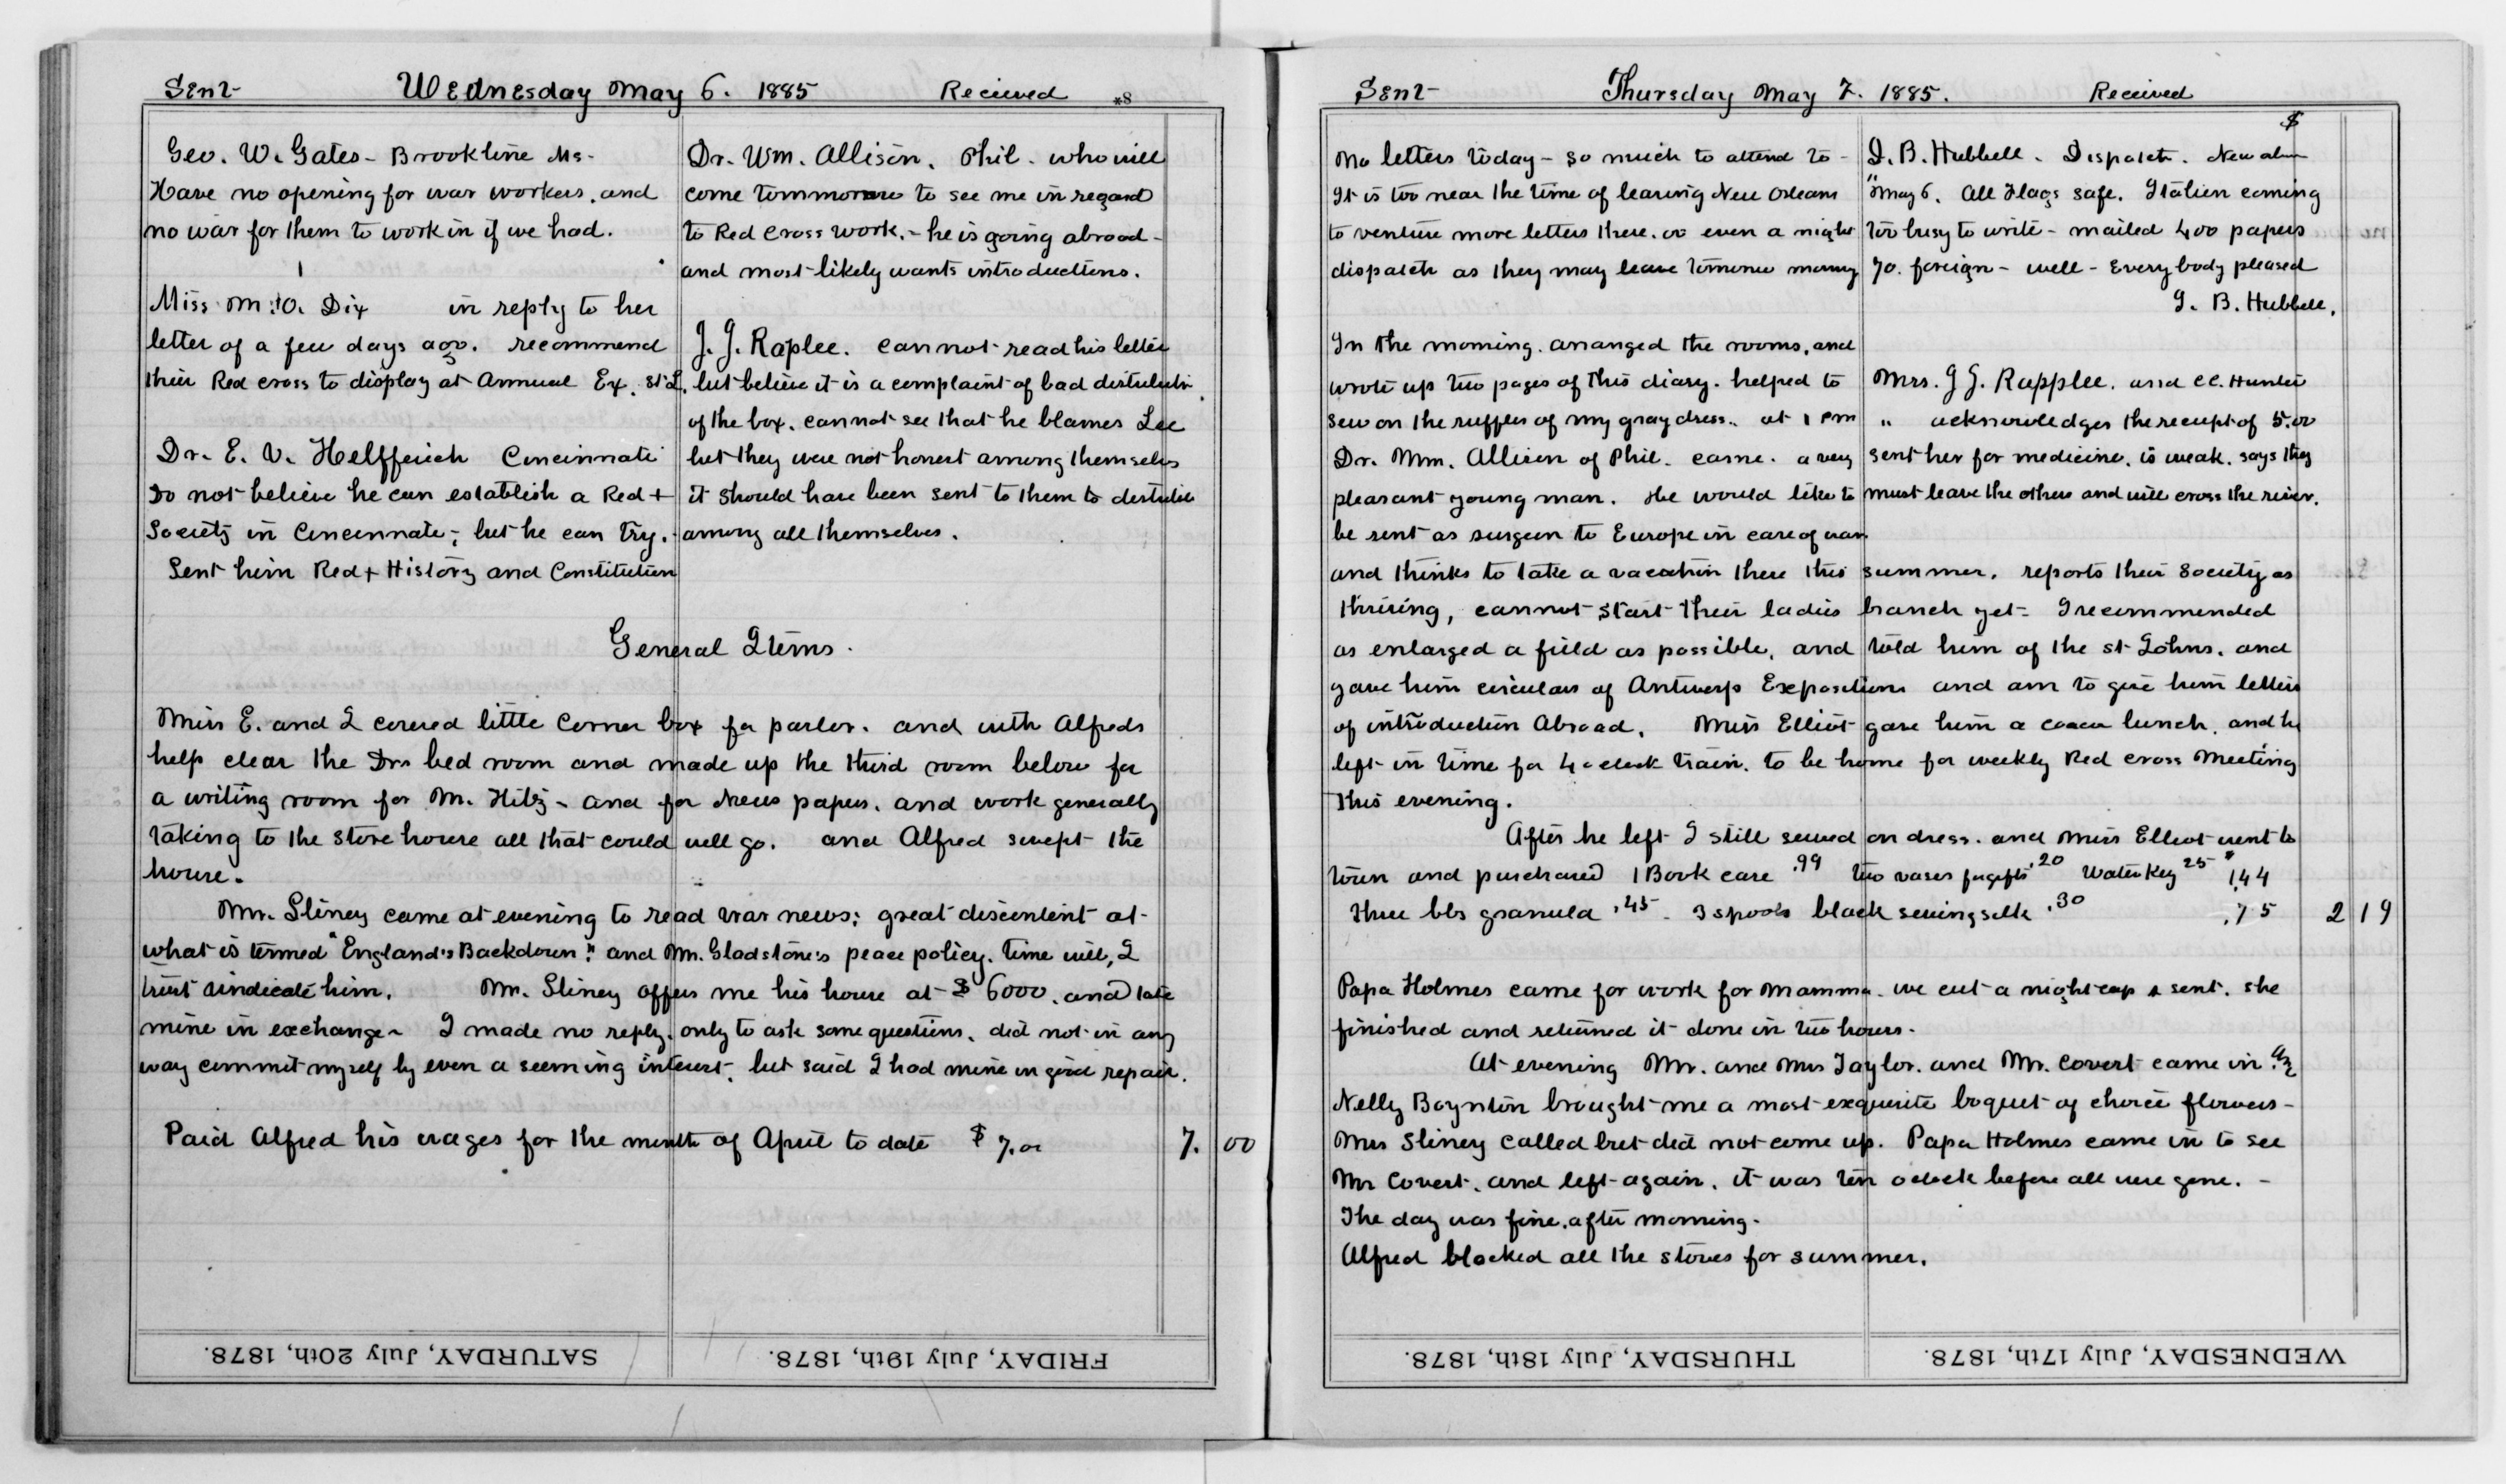 Sent Wednesday May 6. 1885 Received *8
Geo. W. Gates - Brookline Ms.
Have no opening for war workers, and
no war for them to work in if we had.
Miss M. O. Dix in reply to her
letter of a few days ago. recommend
their Red cross to display at Annual Ex. St L.
Dr. E. V. Helfferich Cincinnati
Do not believe he can establish a Red +
Society in Cincinnati; but he can try.
Sent him Red + History and Constitution
Dr. Wm. Allison. Phil. who will
come tommorow to see me in regard
to Red Cross work. - he is going abroad -
and most likely wants introductions.
J. J. Raplee. cannot read his letter
but believe it is a complaint of bad distributn.
of the box. cannot see that he blames Lee
but they were not honest among themselves
it should have been sent to them to distribute
among all themselves.
General Items.
Miss E. and I covered little corner box for parlor. and with Alfreds
help clear the Drs bed room and made up the third room below for
a writing room for M. Hitz - and for News papers. and work generally
taking to the store house all that could well go. and Alfred swept the
house.
Mr. Sliney came at evening to read war news: great discontent at
what is termed "England's Backdown." and Mr. Gladstone's peace policy. time will, I
trust vindicate him. Mr. Sliney offers me his house at $6000. and take
mine in exchange - I made no reply. only to ask some questions. did not in any
way commit myself by even a seeming interest. but said I had mine in good repair.
Paid Alfred his wages for the month of April to date $ 7.00 7. 00
SATURDAY, July 20th, 1878.
FRIDAY, July 19th, 1878.
Sent Thursday May 7. 1885. Received
$
No letters today - so much to attend to -
It is too near the time of leaving New Orleans
to venture more letters there. or even a night
dispatch as they may leave tomorrow morning
In the morning. arranged the rooms, and
wrote up two pages of this diary. helped to
sew on the ruffles of my gray dress. at 1 pm
Dr. Wm. Allison of Phil. came. a very
pleasant young man. He would like to
be sent as surgeon to Europe in case of war
J. B. Hubbell. Dispatch. New
"May 6. All Flags safe. Italien coming
too busy to write - mailed 400 papers
70. foreign - well - Everybody pleased
J. B. Hubbell.
Mrs. J J. Rapplee. and Hunter
" acknowledges the receipt of 5.00
sent her for medicine. is weak. says they
must leave the others and will cross the river.
and thinks to take a vacation there this summer. reports their Society as
thriving, cannot start their ladies branch yet - I recommended
as enlarged a field as possible, and told him of the St Johns. and
gave him circulars of Antwerp Exposition and am to give him letters
of introduction Abroad. Miss Elliot gave him a cocoa lunch. and he
left in time for 4 oclock train. to be home for weekly Red cross Meeting
this evening.
After he left I still sewed on dress. and Miss Elliot went to
town and purchased 1 Book case .99 two vases for gifts .20 Water Keg 25 $1,44
three lbs granula .45 - 3 spools black sewing silk .30 .75 2 19
Papa Holmes came for work for Mamma. we cut a night cap & sent. she
finished and returned it done in two hours.
At evening Mr. and Mrs Taylor. and Mr. Covert came in.
Nelly Boynton brought me a most exquisite boquet of choice flowers -
Mrs Sliney called but did not come up. Papa Holmes came in to see
Mr Covert. and left again. it was ten oclock before all were gone. -
The day was fine. after morning.
Alfred blacked all the stoves for summer.
THURSDAY, July 18th, 1878.
WEDNESDAY, July 17th, 1878.